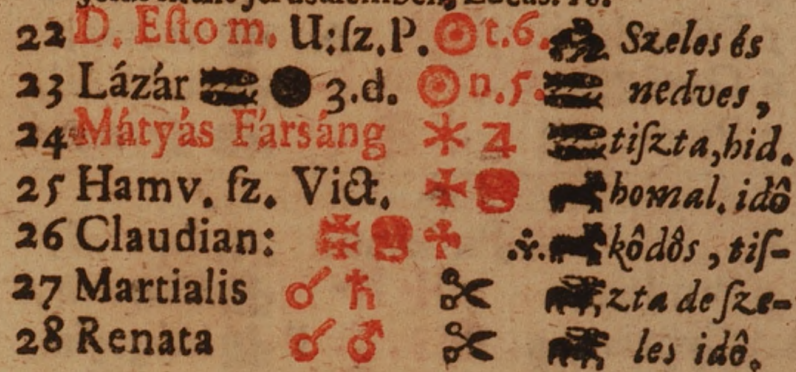 22 D. Eſto m. U: ſz. P. ☉ t. 6. Szeles és
23 Lázár ● 3. d. ☉ n. 5. nedves,
24 Mátyás Fársáng ⚹ ♃ tiſzta, hid.
25 Hamv. ſz. Vict. homal. idô
26 Claudian: kôdôs, tiſ-
27 Martialis ☌ ♄ ✂ zta de ſze-
28 Renata ☌ ♂ ✂ les idô.